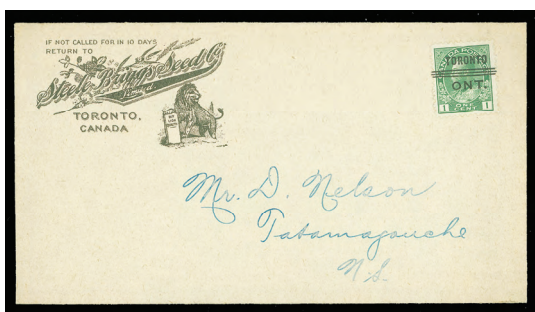 IF NOT CALLED FOR IN 10 DAYS
RETURN TO
Steele, Briggs Seed Co.
Limited
TORONTO,
CANADA
TORONTO
ONT.
1 ONE CENT 1
Mr. D. Nelson
Tatamagouche
N.S.